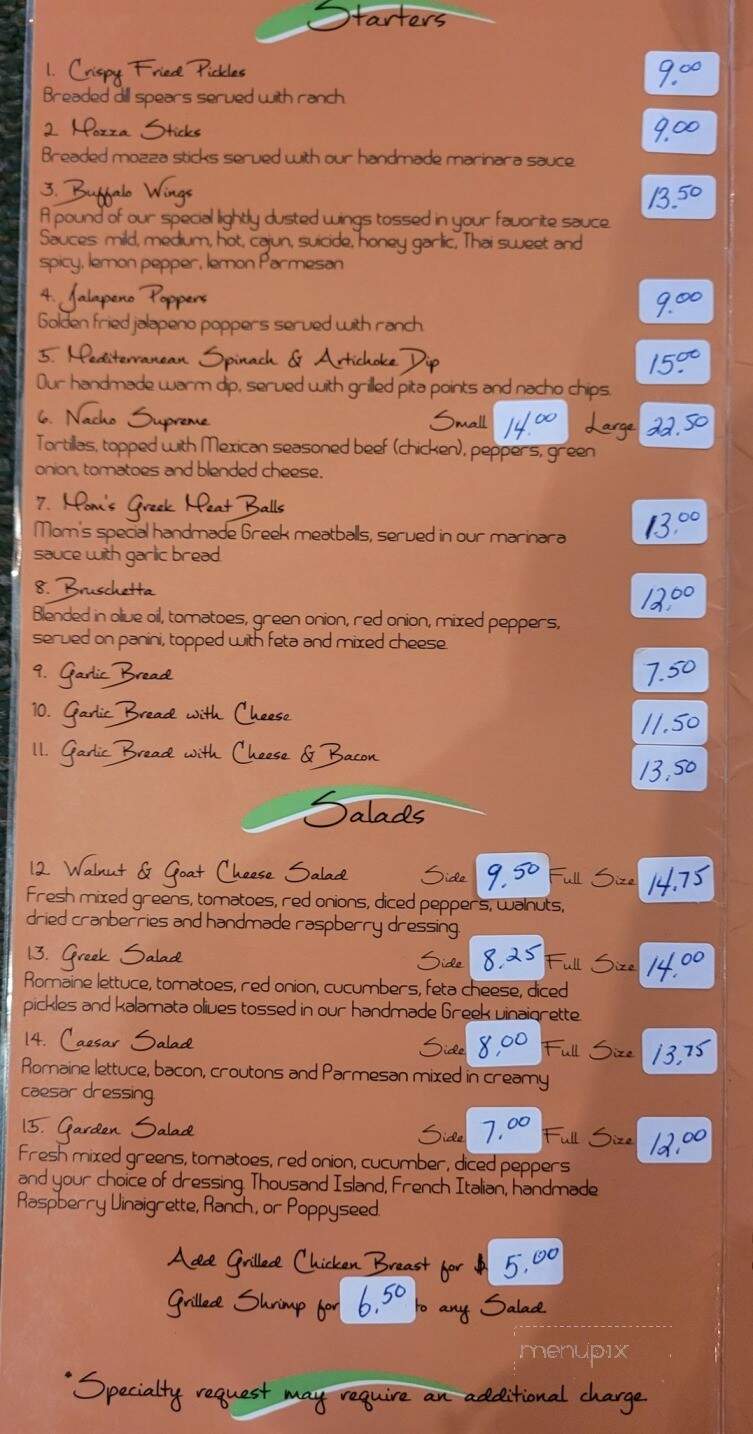 Starters
1. Crispy Fried Pickles 9.00
Breaded dill spears served with ranch
2. Mozza Sticks 9.00
Breaded mozza sticks served with our handmade marinara sauce
3. Buffalo Wings 13.50
A pound of our special lightly dusted wings tossed in your favorite sauce
Sauces: mild, medium, hot, cajun, suicide, honey garlic, Thai sweet and
spicy, lemon pepper, lemon Parmesan
4. Jalapeno Poppers 9.00
Golden fried jalapeno poppers served with ranch
5. Mediterranean Spinach & Artichoke Dip 15.00
Our handmade warm dip, served with grilled pita points and nacho chips.
6. Nacho Supreme Small 14.00 Large 22.50
Tortillas, topped with Mexican seasoned beef (chicken), peppers, green
onion, tomatoes and blended cheese.
7. Mom's Greek Meat Balls 13.00
Mom's special handmade Greek meatballs, served in our marinara
sauce with garlic bread.
8. Bruschetta 12.00
Blended in olive oil, tomatoes, green onion, red onion, mixed peppers,
served on panini, topped with feta and mixed cheese
9. Garlic Bread 7.50
10. Garlic Bread with Cheese 11.50
11. Garlic Bread with Cheese & Bacon 13.50
Salads
12. Walnut & Goat Cheese Salad Side 9.50 Full Size 14.75
Fresh mixed greens, tomatoes, red onions, diced peppers, walnuts,
dried cranberries and handmade raspberry dressing.
13. Greek Salad Side 8.25 Full Size 14.00
Romaine lettuce, tomatoes, red onion, cucumbers, feta cheese, diced
pickles and kalamata olives tossed in our handmade Greek vinaigrette
14. Caesar Salad Side 8.00 Full Size 13.75
Romaine lettuce, bacon, croutons and Parmesan mixed in creamy
caesar dressing.
15. Garden Salad Side 7.00 Full Size 12.00
Fresh mixed greens, tomatoes, red onion, cucumber, diced peppers
and your choice of dressing. Thousand Island, French Italian, handmade
Raspberry Vinaigrette, Ranch, or Poppyseed.
Add Grilled Chicken Breast for $ 5.00
Grilled Shrimp for 6.50 to any Salad
menupix
*Specialty request may require an additional charge